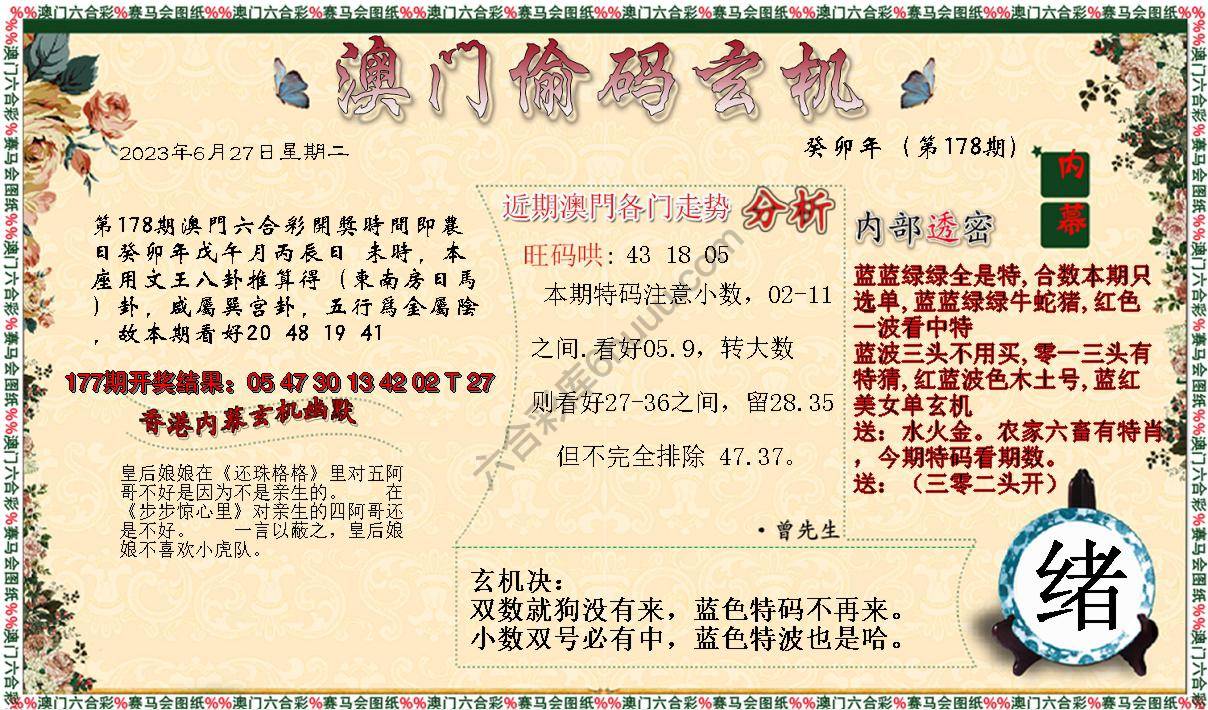 %%澳门六合彩%赛马会图纸%%澳门六合彩%赛马会图纸%%澳门六合彩%赛马会图纸%%澳门六合彩%赛马会图纸%%澳门六合彩%赛马会图纸%%澳门六合彩%赛马会图纸%%
澳门偷码玄机
2023年6月27日星期二
癸卯年（第178期）
内幕
第178期澳門六合彩開獎時間即農
日癸卯年戊午月丙辰日 未時，本
座用文王八卦推算得（東南房日馬
）卦，感屬巽宫卦，五行爲金屬陰
，故本期看好20 48 19 41
177期开奖结果：05 47 30 13 42 02 T 27
香港内幕玄机幽默
皇后娘娘在《还珠格格》里对五阿
哥不好是因为不是亲生的。 在
《步步惊心里》对亲生的四阿哥还
是不好。 一言以蔽之，皇后娘
娘不喜欢小虎队。
近期澳門各门走势 分析
旺码哄: 43 18 05
本期特码注意小数，02-11
之间.看好05.9，转大数
则看好27-36之间，留28.35
但不完全排除 47.37。
·曾先生
内部透密
蓝蓝绿绿全是特,合数本期只
选单,蓝蓝绿绿牛蛇猪,红色
一波看中特
蓝波三头不用买,零一三头有
特猜,红蓝波色木土号,蓝红
美女单玄机
送：水火金。农家六畜有特肖
，今期特码看期数。
送：（三零二头开）
玄机决：
双数就狗没有来，蓝色特码不再来。
小数双号必有中，蓝色特波也是哈。
绪